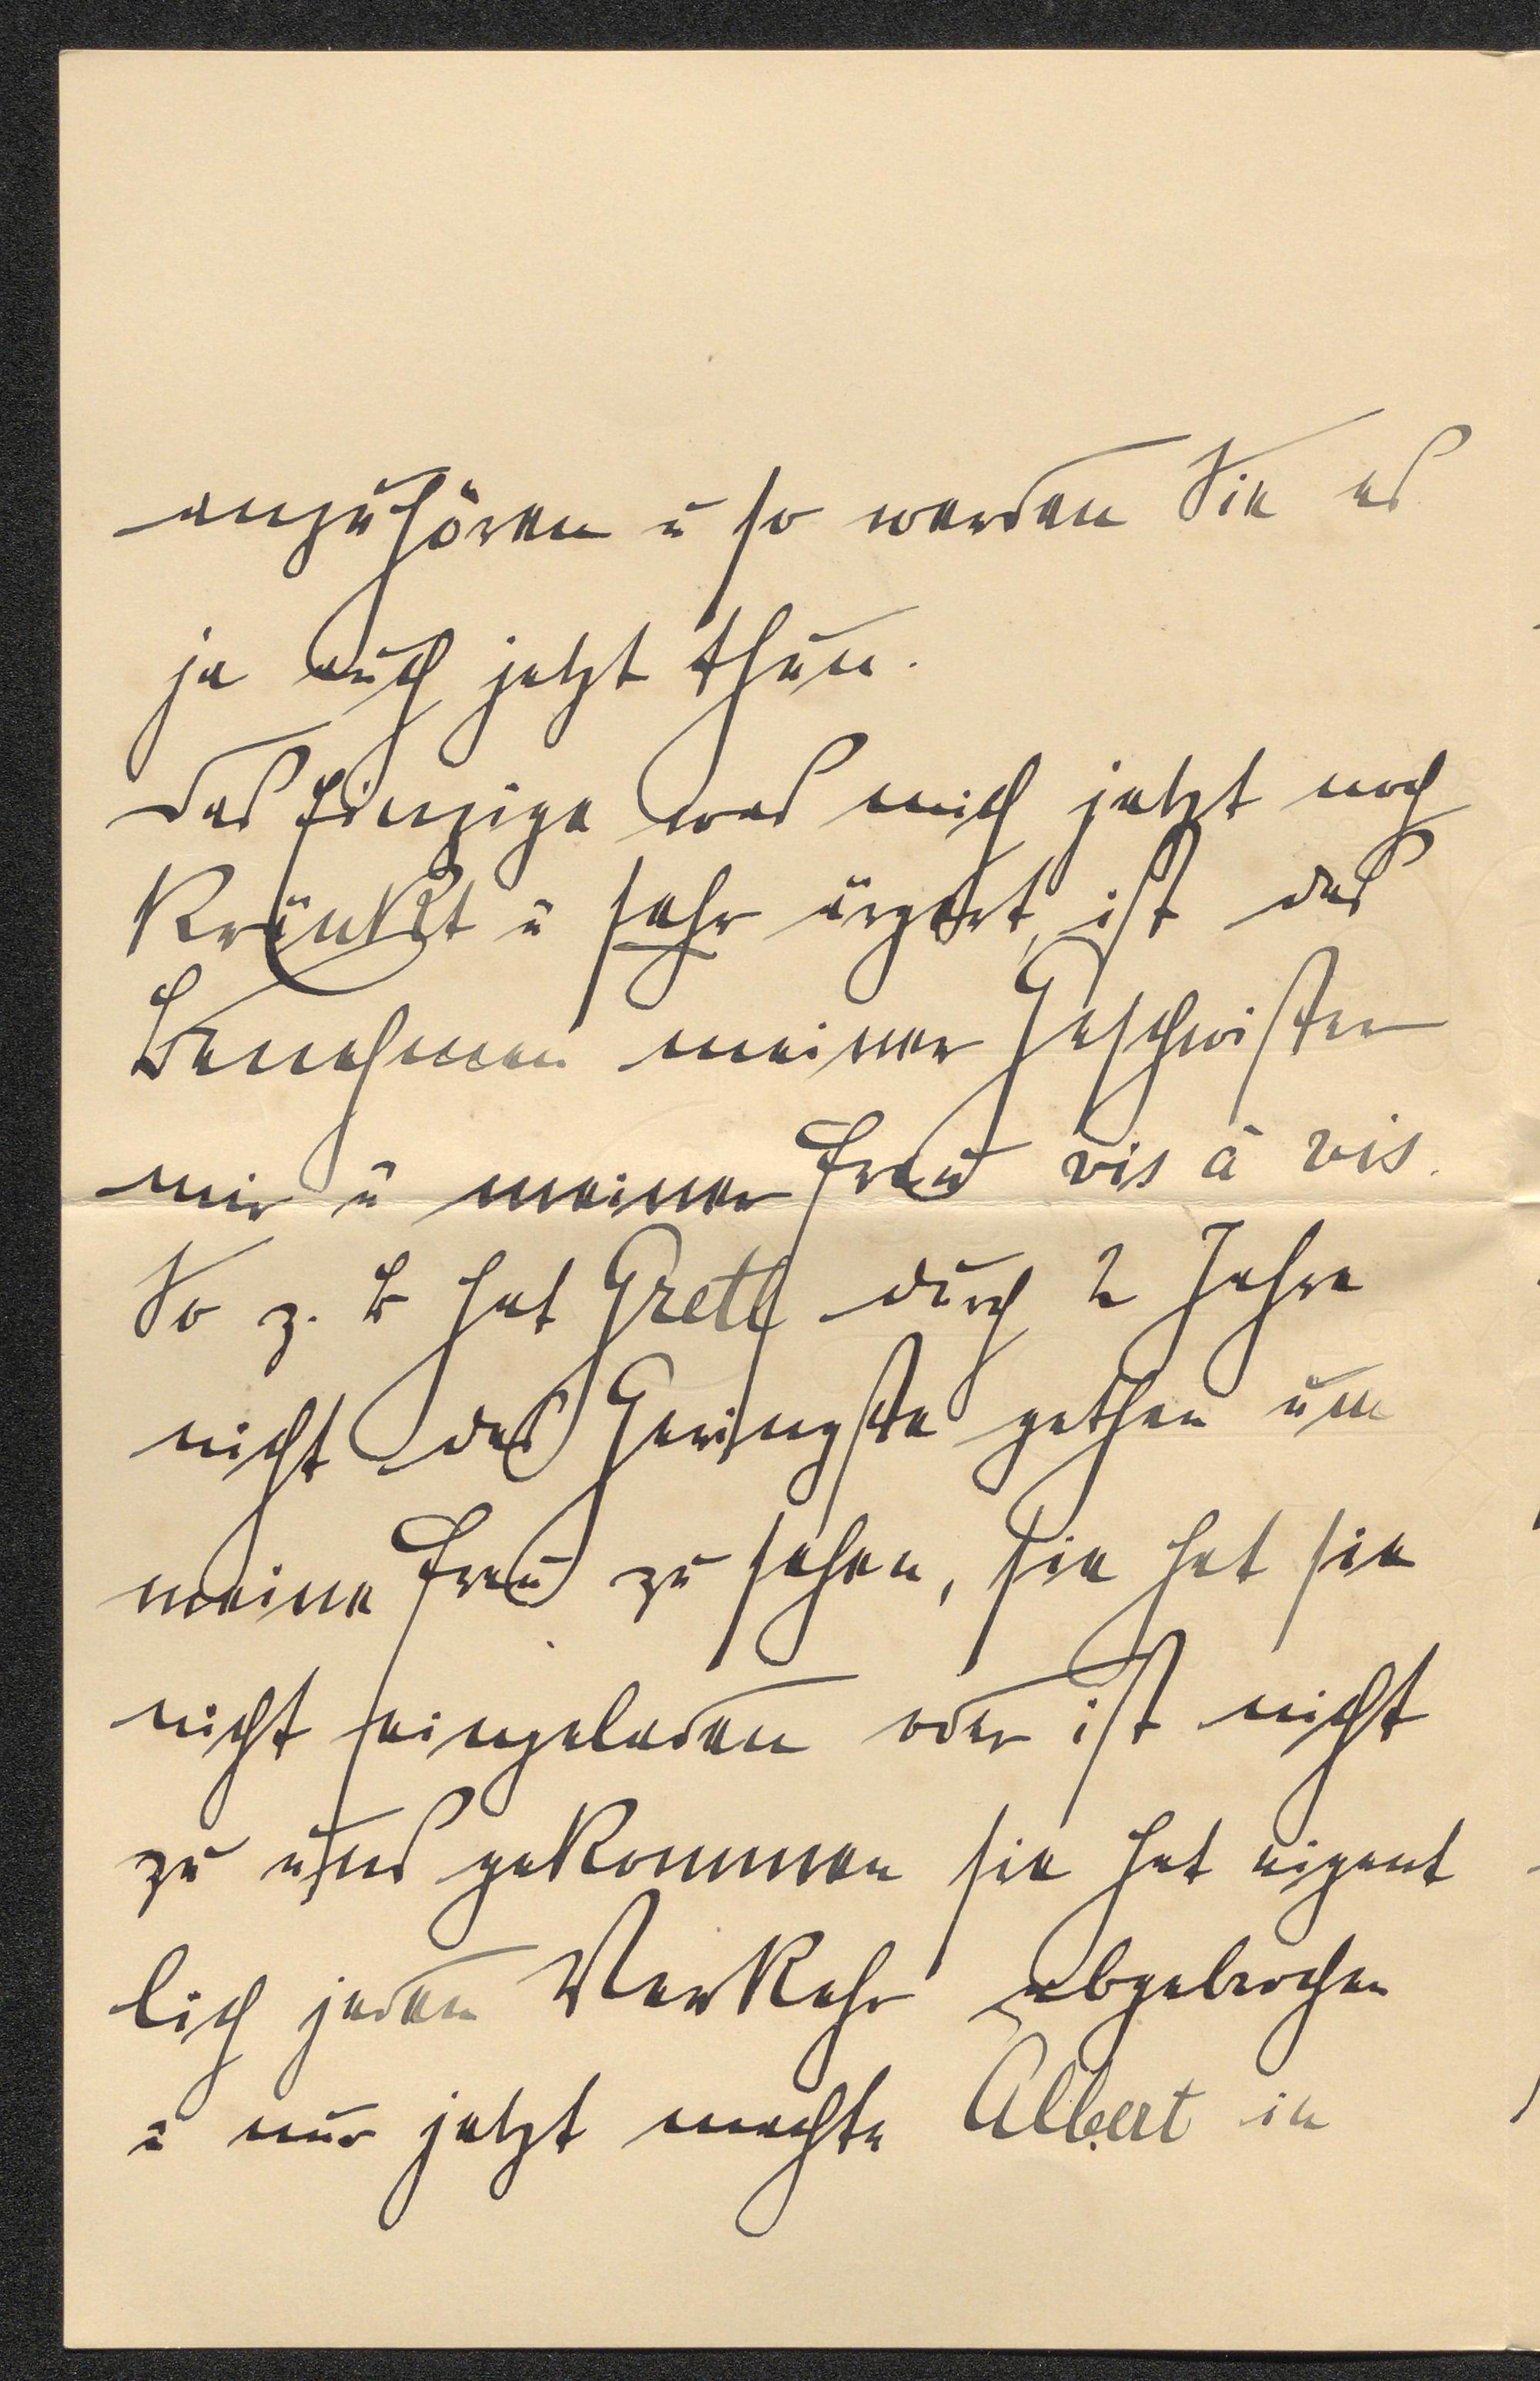 anzuhören u so werden Sie es
ja auch jetzt thun.
Das Einzige was mich jetzt noch
kränkt u sehr ärgert, ist das
Benehmen meiner Geschwister
mir u meiner Frau vis à vis.
So z. B hat Gretl durch 2 Jahre
nicht das Geringste gethan um
meine Frau zu sehen, sie hat sie
nicht eingeladen oder ist nicht
zu uns gekommen sie hat eigent
lich jeden Verkehr abgebrochen
u nur jetzt machte Albert in